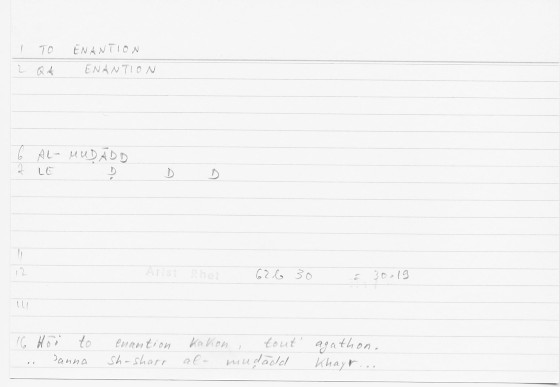 1 TO ENANTION
2 QA ENANTION
6 AL- MUḌĀDD
7 LE Ḍ D D
11
12 Arist Rhet 62b 30 = 30.19
14
16 Hōi to enantion kakon, tout' agathon.
.. ʾanna sh-sharr al- muḍādd khayr...